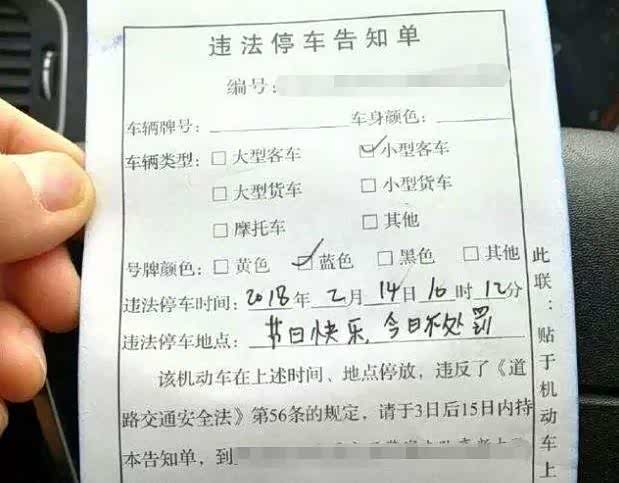 违法停车告知单
编号:
车辆牌号: 车身颜色:
车辆类型: □大型客车 ☑小型客车
□大型货车 □小型货车
□摩托车 □其他
号牌颜色: □黄色 ☑蓝色 □黑色 □其他
违法停车时间: 2018年2月14日16时12分
违法停车地点: 节日快乐,今日不处罚
该机动车在上述时间、地点停放,违反了《道
路交通安全法》第56条的规定,请于3日后15日内持
本告知单,到
此联:贴于机动车上